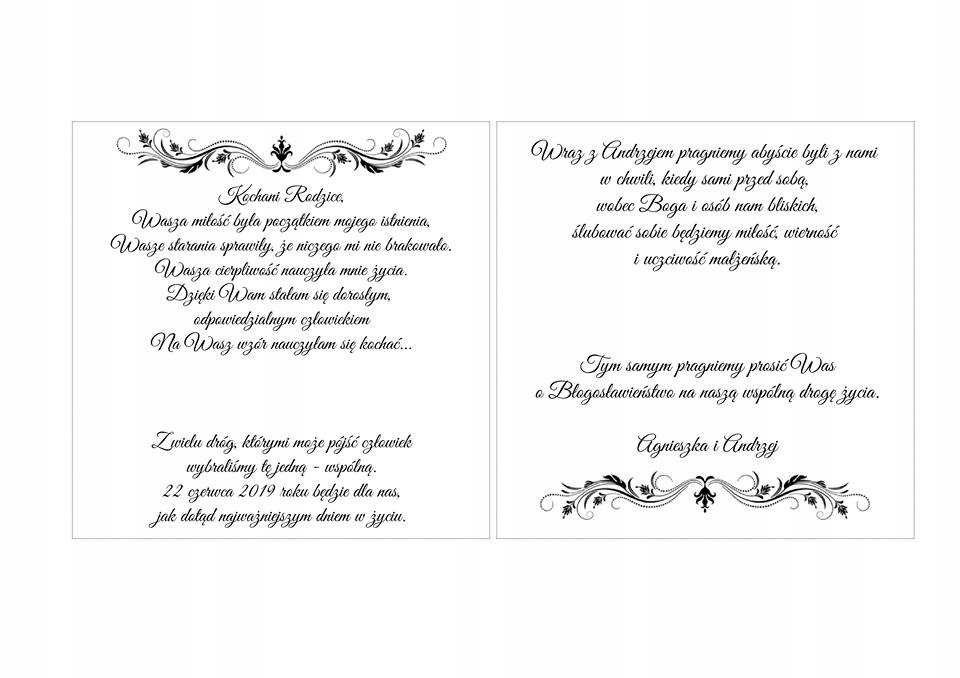 Kochani Rodzice,
Wasza miłość była początkiem mojego istnienia,
Wasze starania sprawiły, że niczego mi nie brakowało.
Wasza cierpliwość nauczyła mnie życia.
Dzięki Wam stałam się dorosłym,
odpowiedzialnym człowiekiem
Na Wasz wzór nauczyłam się kochać...
Zwielu dróg, którymi może pójść człowiek
wybraliśmy tę jedną - wspólną.
22 czerwca 2019 roku będzie dla nas,
jak dotąd najważniejszym dniem w życiu.
Wraz z Andrzejem pragniemy abyście byli z nami
w chwili, kiedy sami przed sobą,
wobec Boga i osób nam bliskich,
ślubować sobie będziemy miłość, wierność
i uczciwość małżeńską.
Tym samym pragniemy prosić Was
o Błogosławieństwo na naszą wspólną drogę życia.
Agnieszka i Andrzej